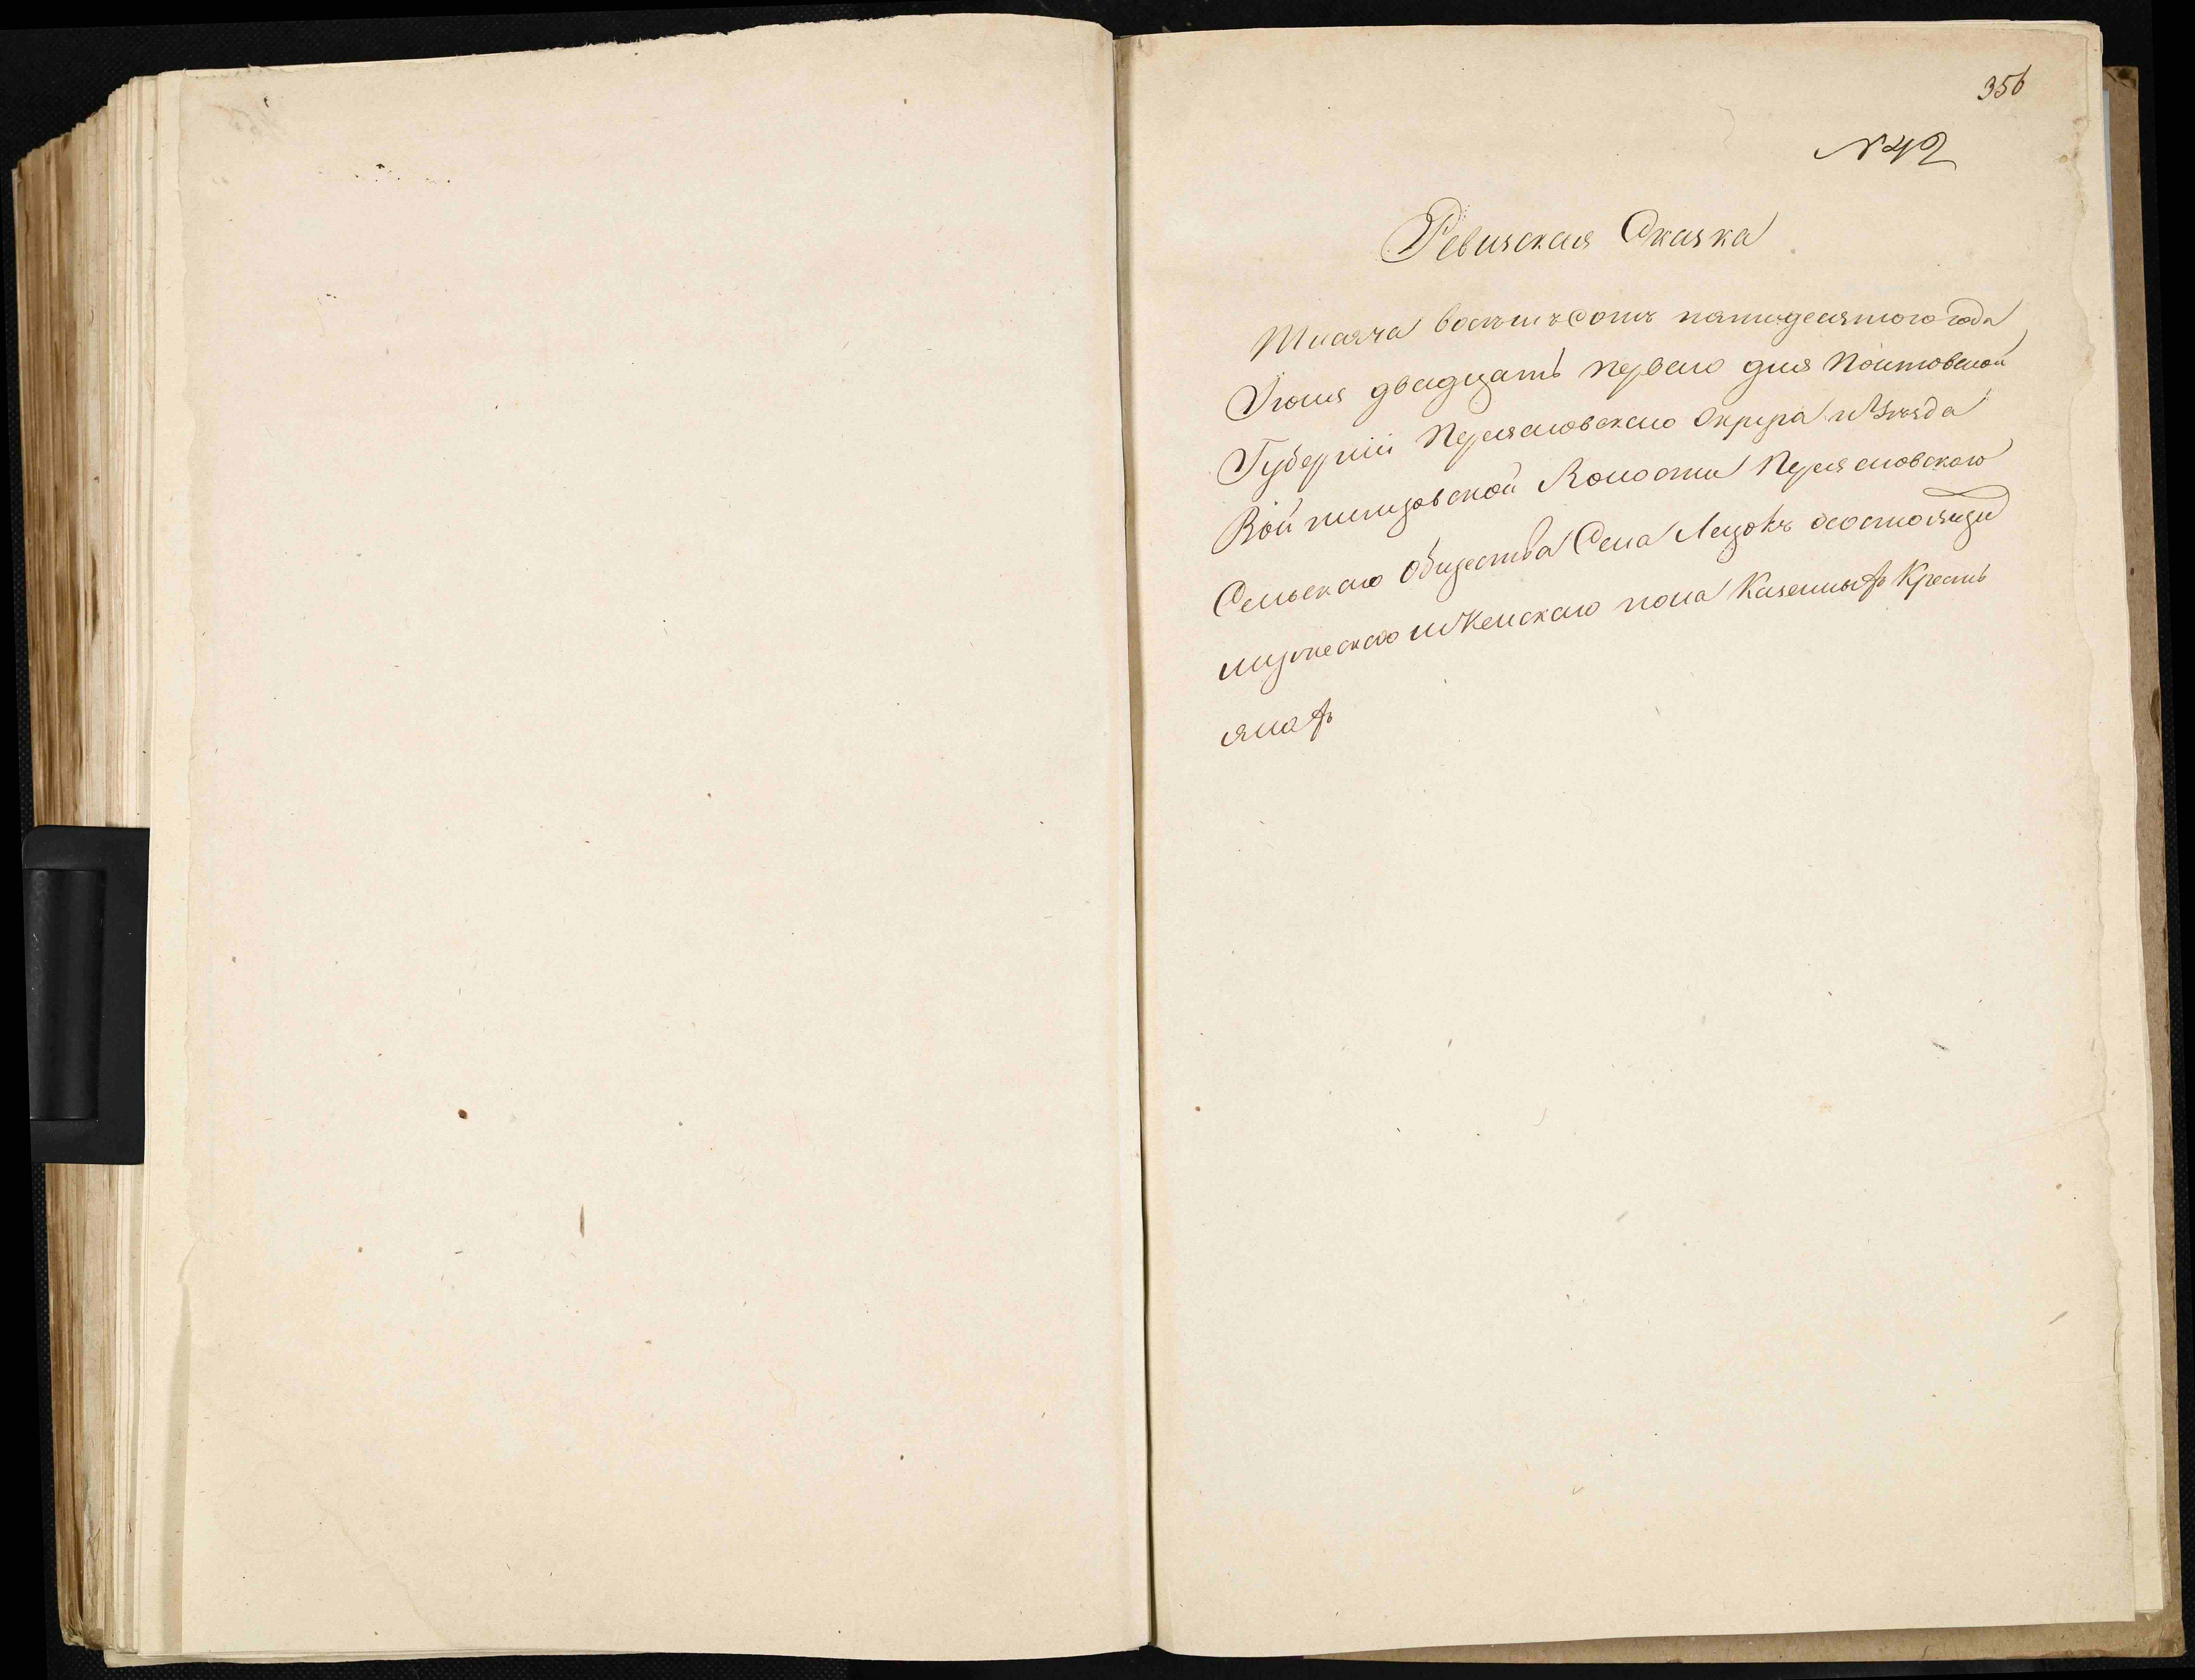 356
№ 42
Ревизская Сказка
Тысяча восемьсотъ пятидесятого года
Іюня двадцать перваго дня Полтовской
Губерніи Переясловскаго Округа и Уезда
Войтницовской Волости Переясловского
Сельскаго Общества Села Лецокъ о состоящи
мужескаго и Женскаго пола Казенныхъ Кресть
янахъ